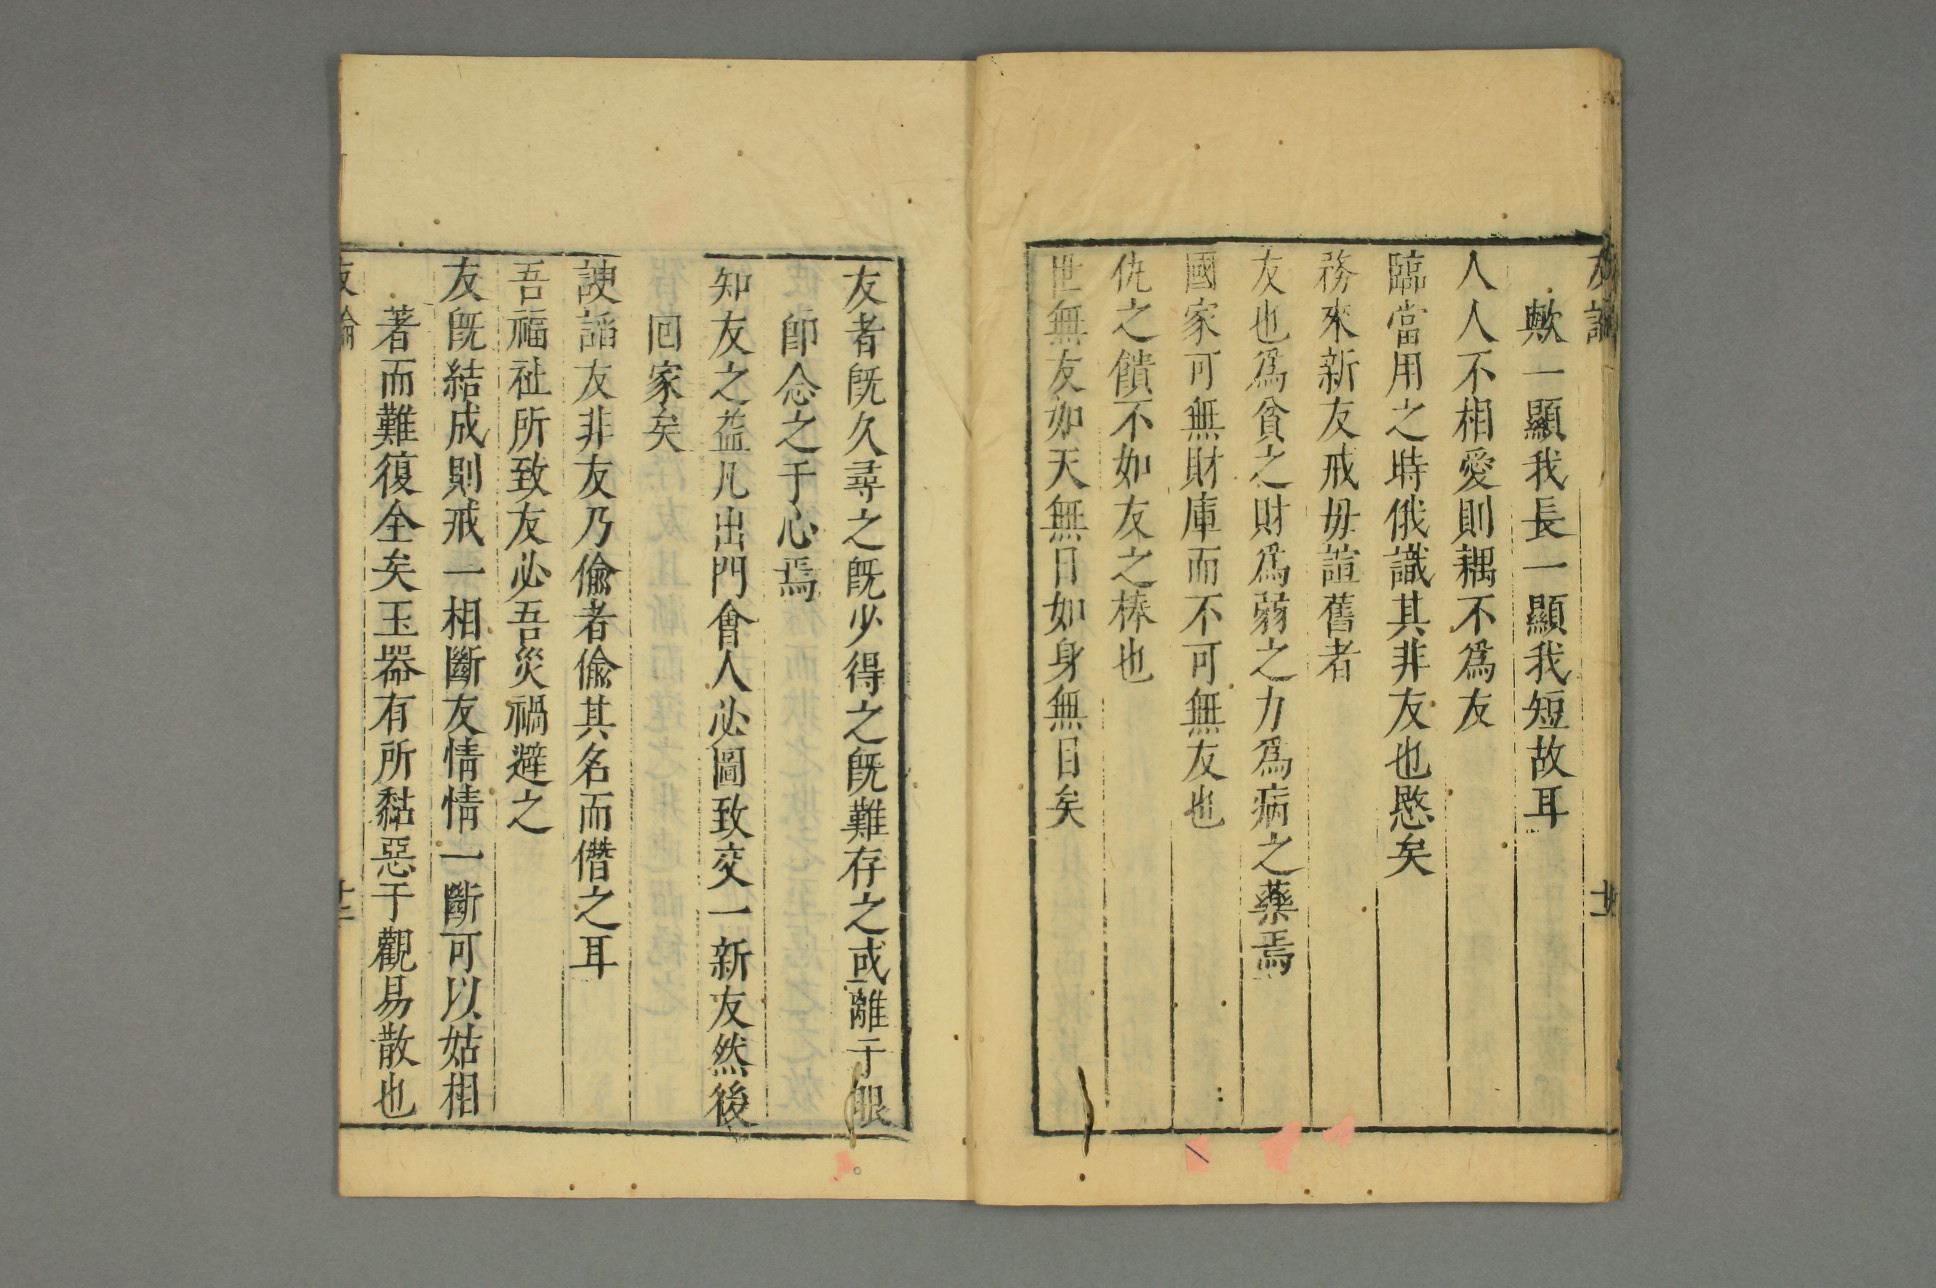 友論
歟一顯我長一顯我短故耳
人人不相愛則耦不爲友
臨當用之時俄識其非友也愍矣
務來新友戒毋諠舊者
友也爲貧之財爲弱之力爲病之藥焉
國家可無財庫而不可無友也
仇之饋不如友之棒也
世無友如天無日如身無目矣
友者旣久尋之旣少得之旣難存之或離于眼
卽念之于心焉
知友之益凡出門會人必圖致交一新友然後
回家矣
諛謟友非友乃偷者偷其名而僭之耳
吾福祉所致友必吾災禍避之
友旣結成則戒一相斷友情情一斷可以姑相
著而難復全矣玉器有所黏惡于觀易散也
友論
十二